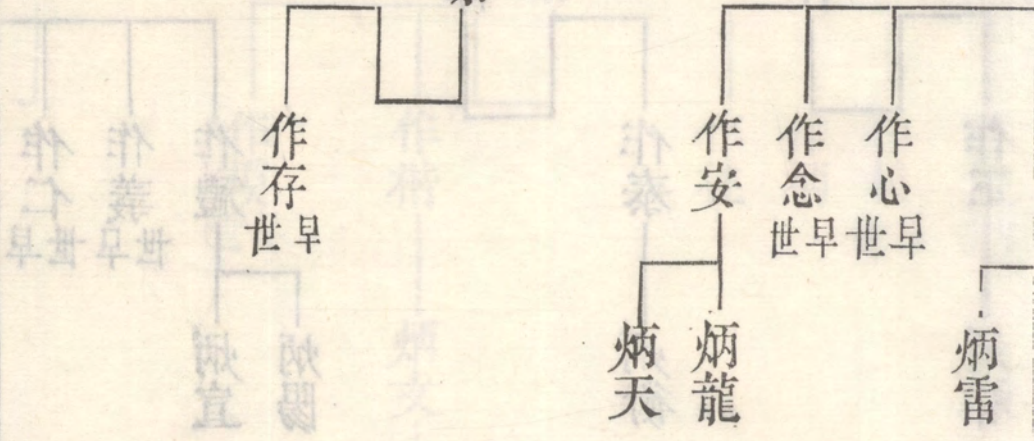 作心
早世
作念
早世
作安
作存
早世
炳雷
炳龍
炳天